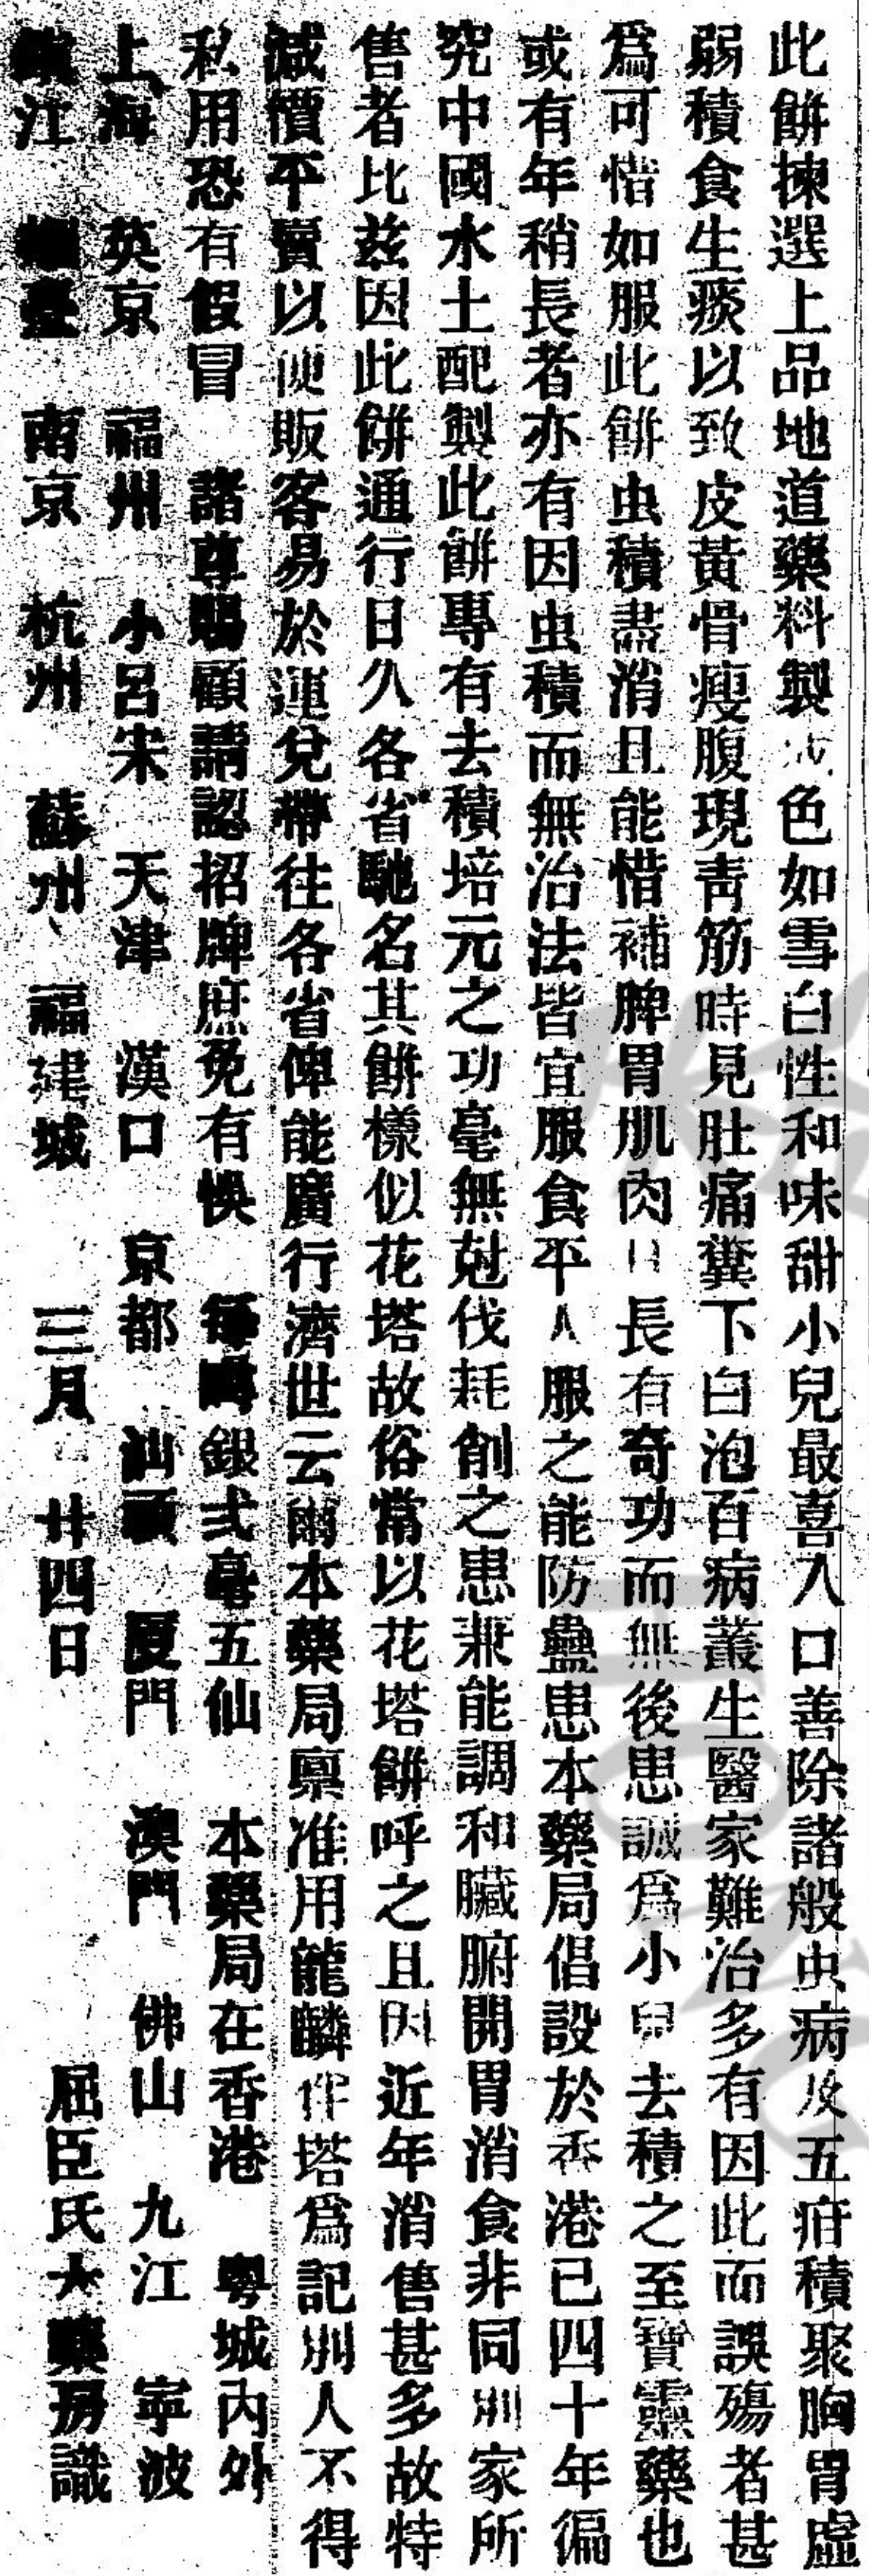 此餅揀選上品地道藥料製成色如雪白性和味甜小兒最喜入口善除諸般虫病及五疳積聚胸胃虛
弱積食生痰以致皮黃骨瘦腹現青筋時見肚痛糞下白泡百病叢生醫家難治多有因此而誤殤者甚
爲可惜如服此餅虫積盡消且能惜補脾胃肌肉日長有奇功而無後患誠爲小兒去積之至寶靈藥也
或有年稍長者亦有因虫積而無治法皆宜服食平人服之能防蠱患本藥局倡設於香港已四十年徧
究中國水土配製此餅專有去積培元之功毫無尅伐耗削之患兼能調和臟腑開胃消食非同別家所
售者比茲因此餅通行日久各省馳名其餅樣似花塔故俗常以花塔餅呼之且因近年消售甚多故特
減價平賣以便販客易於運兌帶往各省俾能廣行濟世云爾本藥局禀准用龍麟伴塔爲記別人不得
私用恐有假冒 諸尊賜顧請認招牌庶免有悞 每樽銀弍毫五仙 本藥局在香港 粵城內外
上海 英京 福州 小呂宋 天津 漢口 京都 汕頭 厦門 澳門 佛山 九江 寧波
鎮江 烟臺 南京 杭州 蘇州 福建城 三月 廿四日 屈臣氏大藥房識